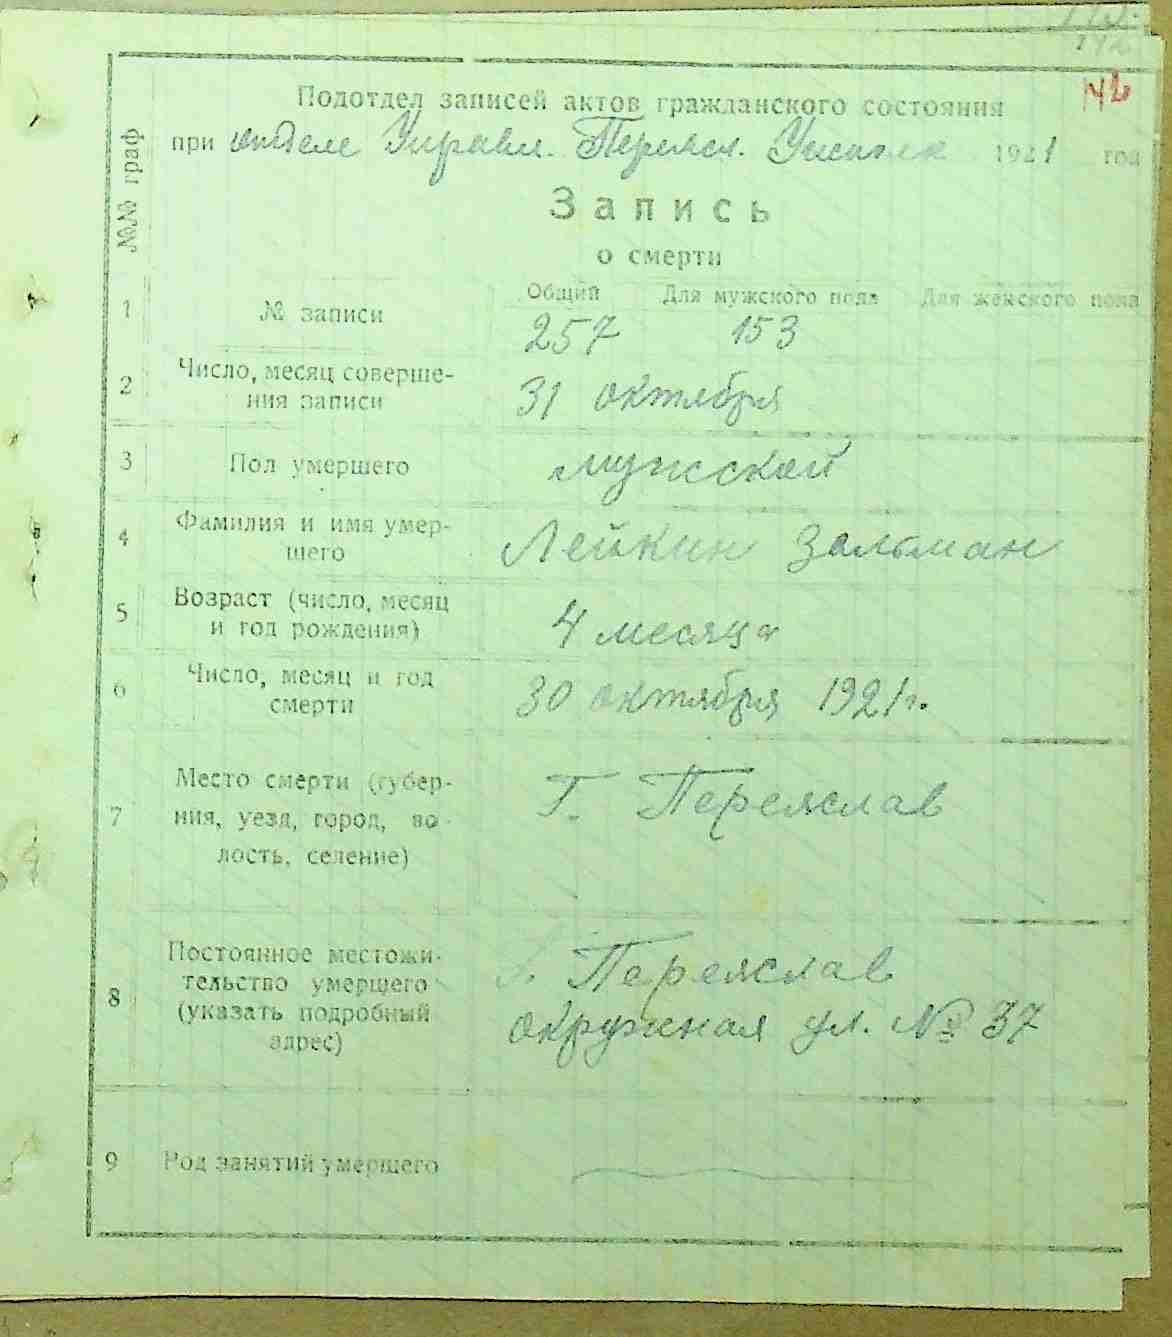 142
142
Подотдел записей актов гражданского состояния
при отделе Управл. Переясл. 1921 год
Запись
о смерти
№№ граф
Общий Для мужского пола Для женского пола
1 № записи 257 153
2 Число, месяц соверше-
ния записи 31 октября
3 Пол умершего мужской
4 Фамилия и имя умер-
шего Лейкин Зальман
5 Возраст (число, месяц
и год рождения) 4 месяца
6 Число, месяц и год
смерти 30 октября 1921 г.
7 Место смерти (губер-
ния, уезд, город, во-
лость, селение) Г. Переяслав
8 Постоянное местожи-
тельство умершего
(указать подробный
адрес) г. Переяслав
окружная ул. № 37
9 Род занятий умершего